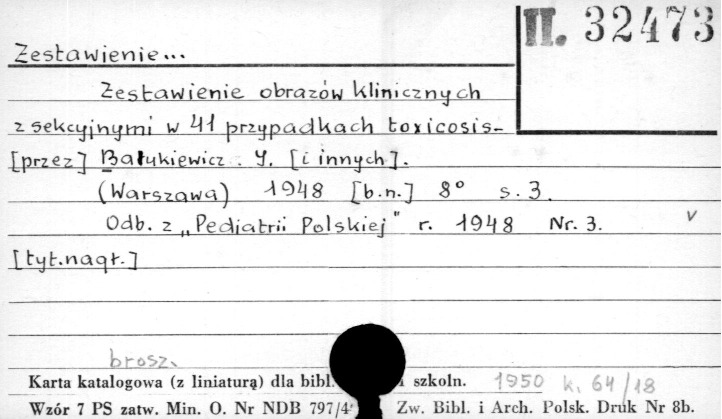 II. 32473
Zestawienie...
Zestawienie obrazów klinicznych
z sekcyjnymi w 41 przypadkach toxicosis-
[przez] Bałukiewicz. Y. [i innych].
(Warszawa) 1948 [b.n.] 8° s. 3.
Odb. z „Pediatrii Polskiej" r. 1948 Nr. 3. v
[tyt.nagł.]
brosz.
Karta katalogowa (z liniaturą) dla bibl. szkoln. 1950 k. 64/18
Wzór 7 PS zatw. Min. O. Nr NDB 797/4 Zw. Bibl. i Arch. Polsk. Druk Nr 8b.